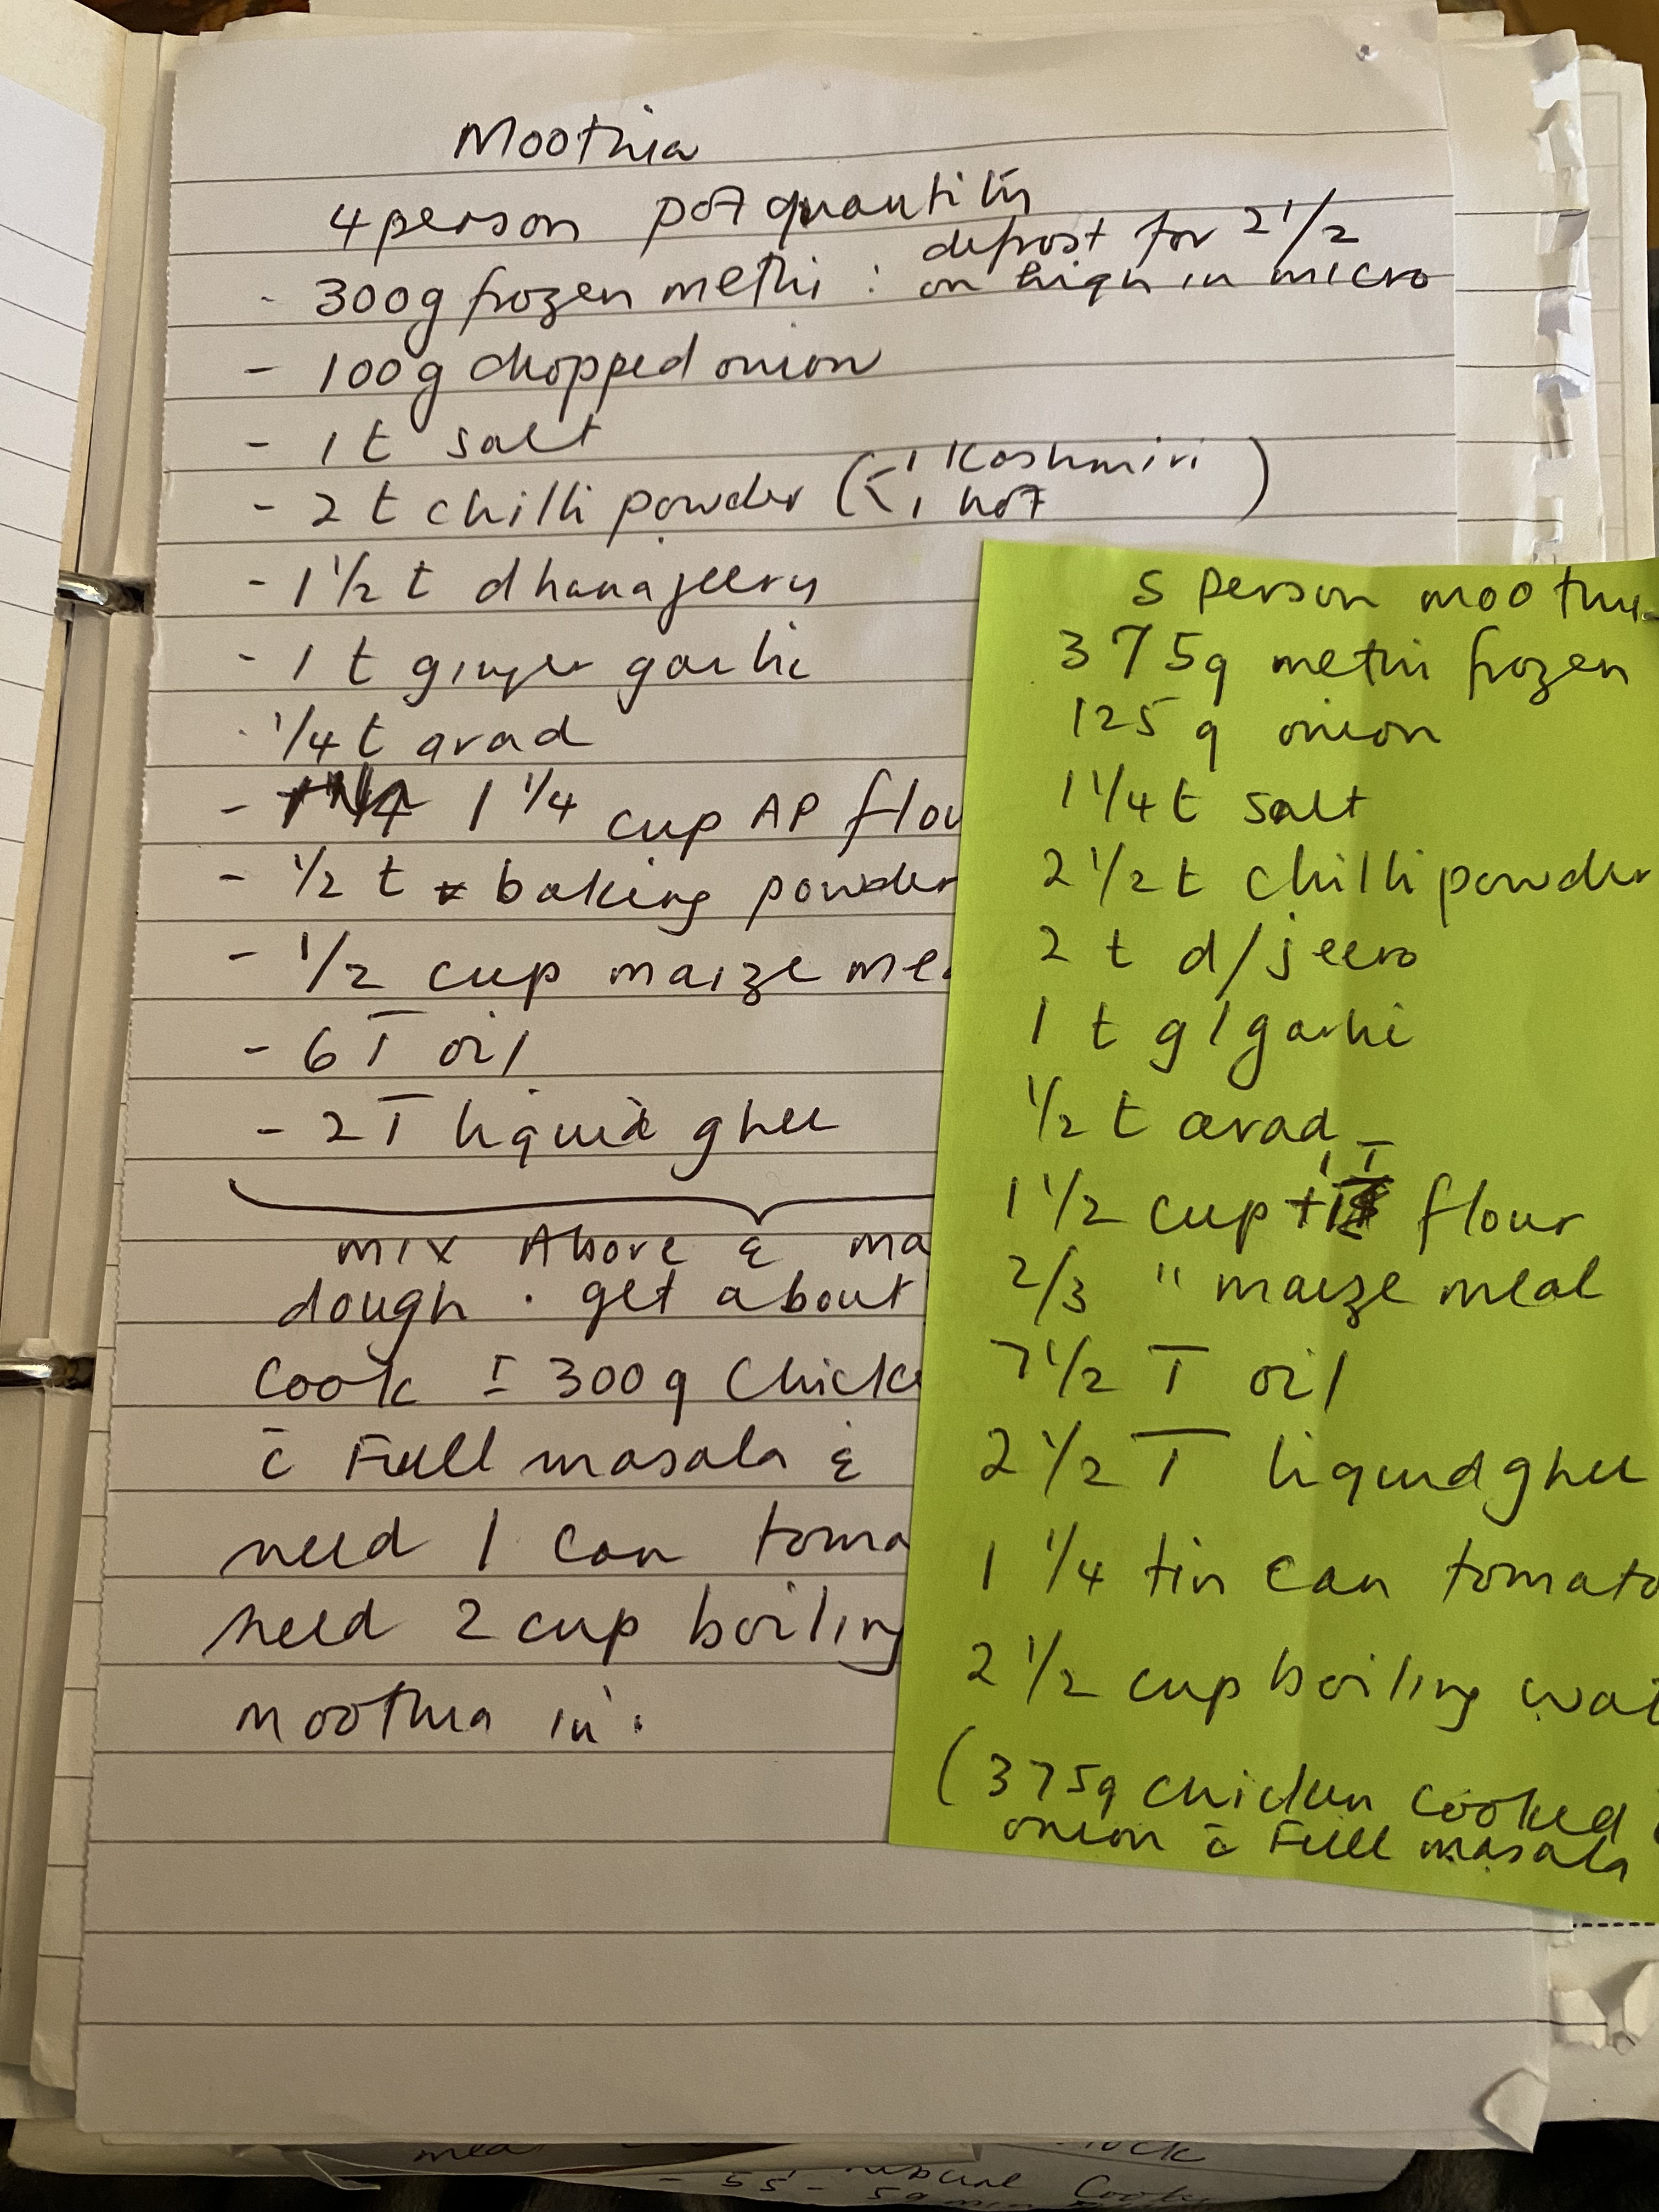 Moothia
4 person pot quantitis
- 300g frozen methi : defrost for 2 1/2
on high in micro
- 100g chopped onion
- 1 t salt
- 2 t chilli powder ( < 1 Kashmiri
1 hot )
- 1 1/2 t dhanajeeru
- 1 t ginger garlic
- 1/4 t arad
- 1 1/4 cup AP flou
- 1/2 t baking powder
- 1/2 cup maize mea
- 6 T oil
- 2 T liquid ghee
mix Above & ma
dough . get about
Cook ± 300g Chicke
c̄ Full masala &
need 1 can toma
need 2 cup boiling
moothia in .
5 person moothi
375g methi frozen
125 g onion
1 1/4 t salt
2 1/2 t chilli powder
2 t d/jeero
1 t g/garlic
1/2 t arad
1 1/2 cup + 1 T flour
2/3 " maize meal
7 1/2 T oil
2 1/2 T liquid ghee
1 1/4 tin can tomato
2 1/2 cup boiling wat
(375g chicken cooked
onion c̄ Full masala
55 - 59 min